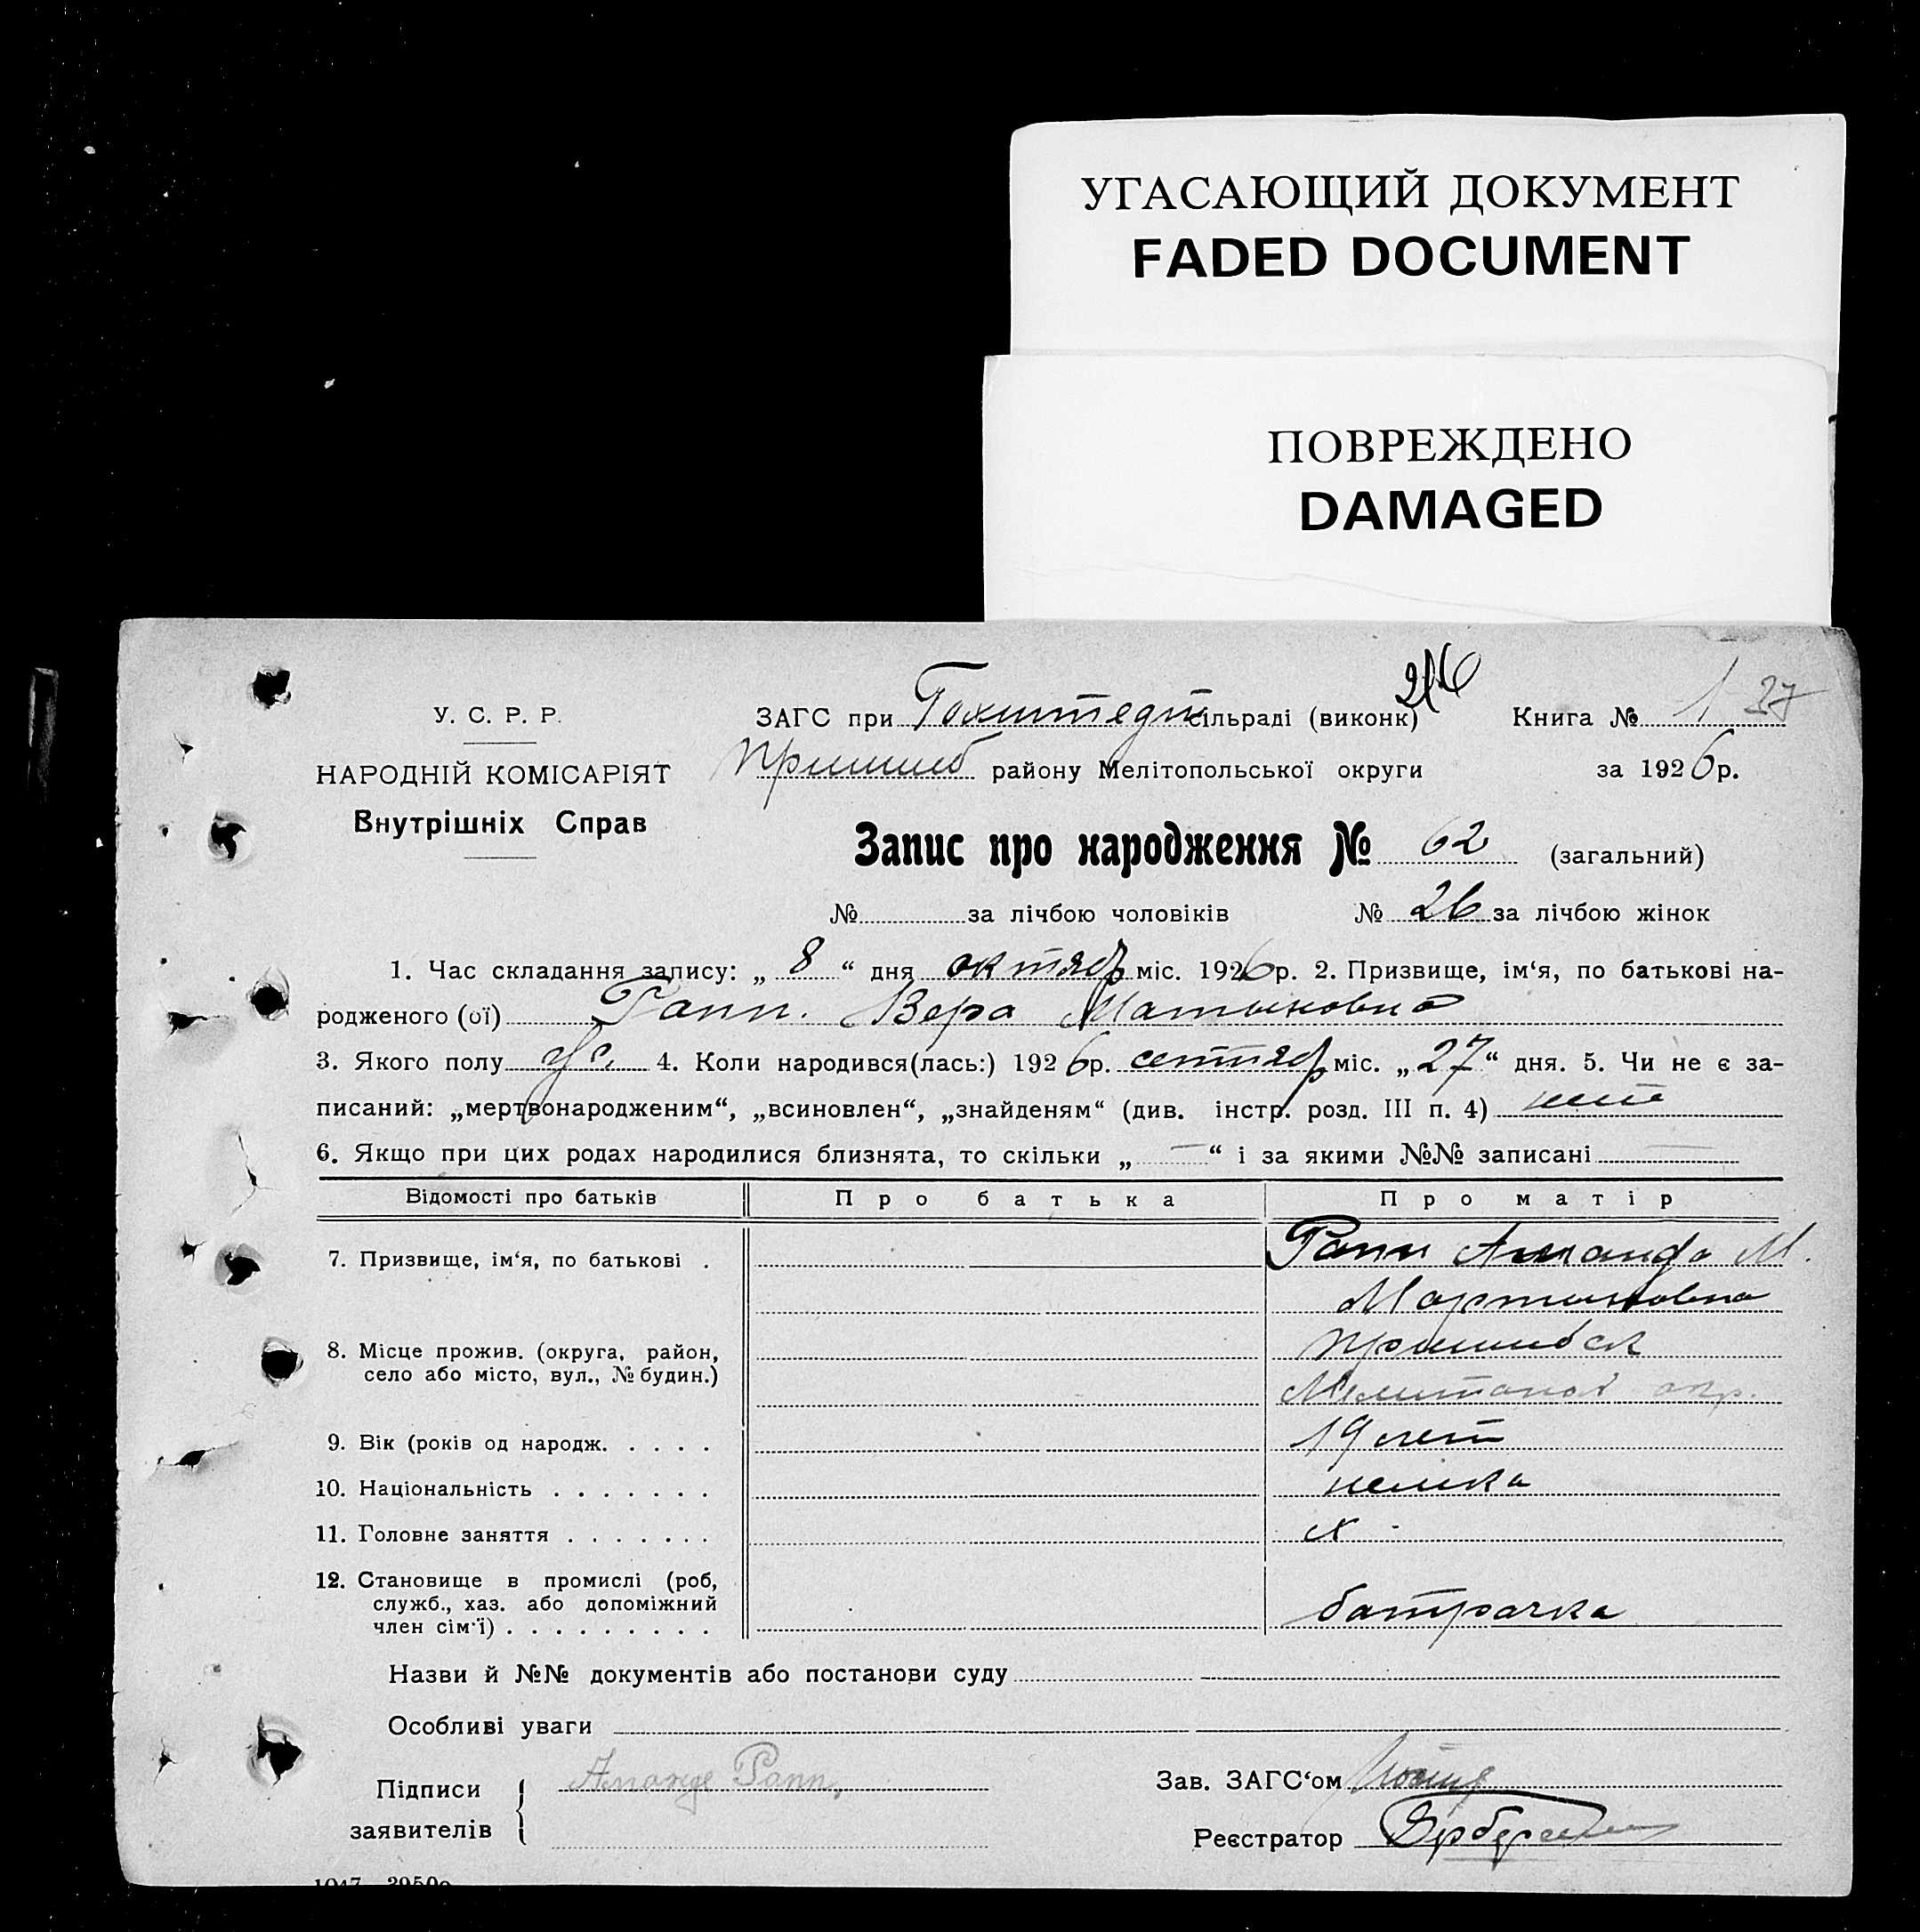 УГАСАЮЩИЙ ДОКУМЕНТ
FADED DOCUMENT
ПОВРЕЖДЕНО
DAMAGED
У. С. Р. Р.
НАРОДНІЙ КОМІСАРІЯТ
Внутрішніх Справ
216
ЗАГС при Гохштедт сільраді (виконк) Книга № 1 37
Пришиб району Мелітопольської округи за 1926 р.
Запис про народження № 62 (загальний)
№ за лічбою чоловіків № 26 за лічбою жінок
1. Час складання запису: „ 8 “ дня октябр міс. 1926 р. 2. Призвище, ім‘я, по батькові на-
родженого (ої) Рапп. Вера Матыновна
3. Якого полу 4. Коли народився(лась:) 1926 р. сентябр міс. „27“ дня. 5. Чи не є за-
писаний: „мертвонародженим“, „всиновлен“, „знайденям“ (див. інстр. розд. III п. 4) нет
6. Якщо при цих родах народилися близнята, то скільки „ — “ і за якими №№ записані —
Відомості про батьків Про батька Про матір
7. Призвище, ім‘я, по батькові . Рапп Аманда М.
Мартыновна
8. Місце прожив. (округа, район, село або місто, вул., № будин.) Пришибск
Мелитопол окр.
9. Вік (років од народж. . . . . 19 лет
10. Національність . . . . . . . немка
11. Головне заняття . . . . . . . х
12. Становище в промислі (роб,
служб., хаз. або допоміжний
член сім‘ї) . . . . . . . . . батрачка
Назви й №№ документів або постанови суду
Особливі уваги
Підписи заявителів Рапп,
Зав. ЗАГС‘ом
Реєстратор